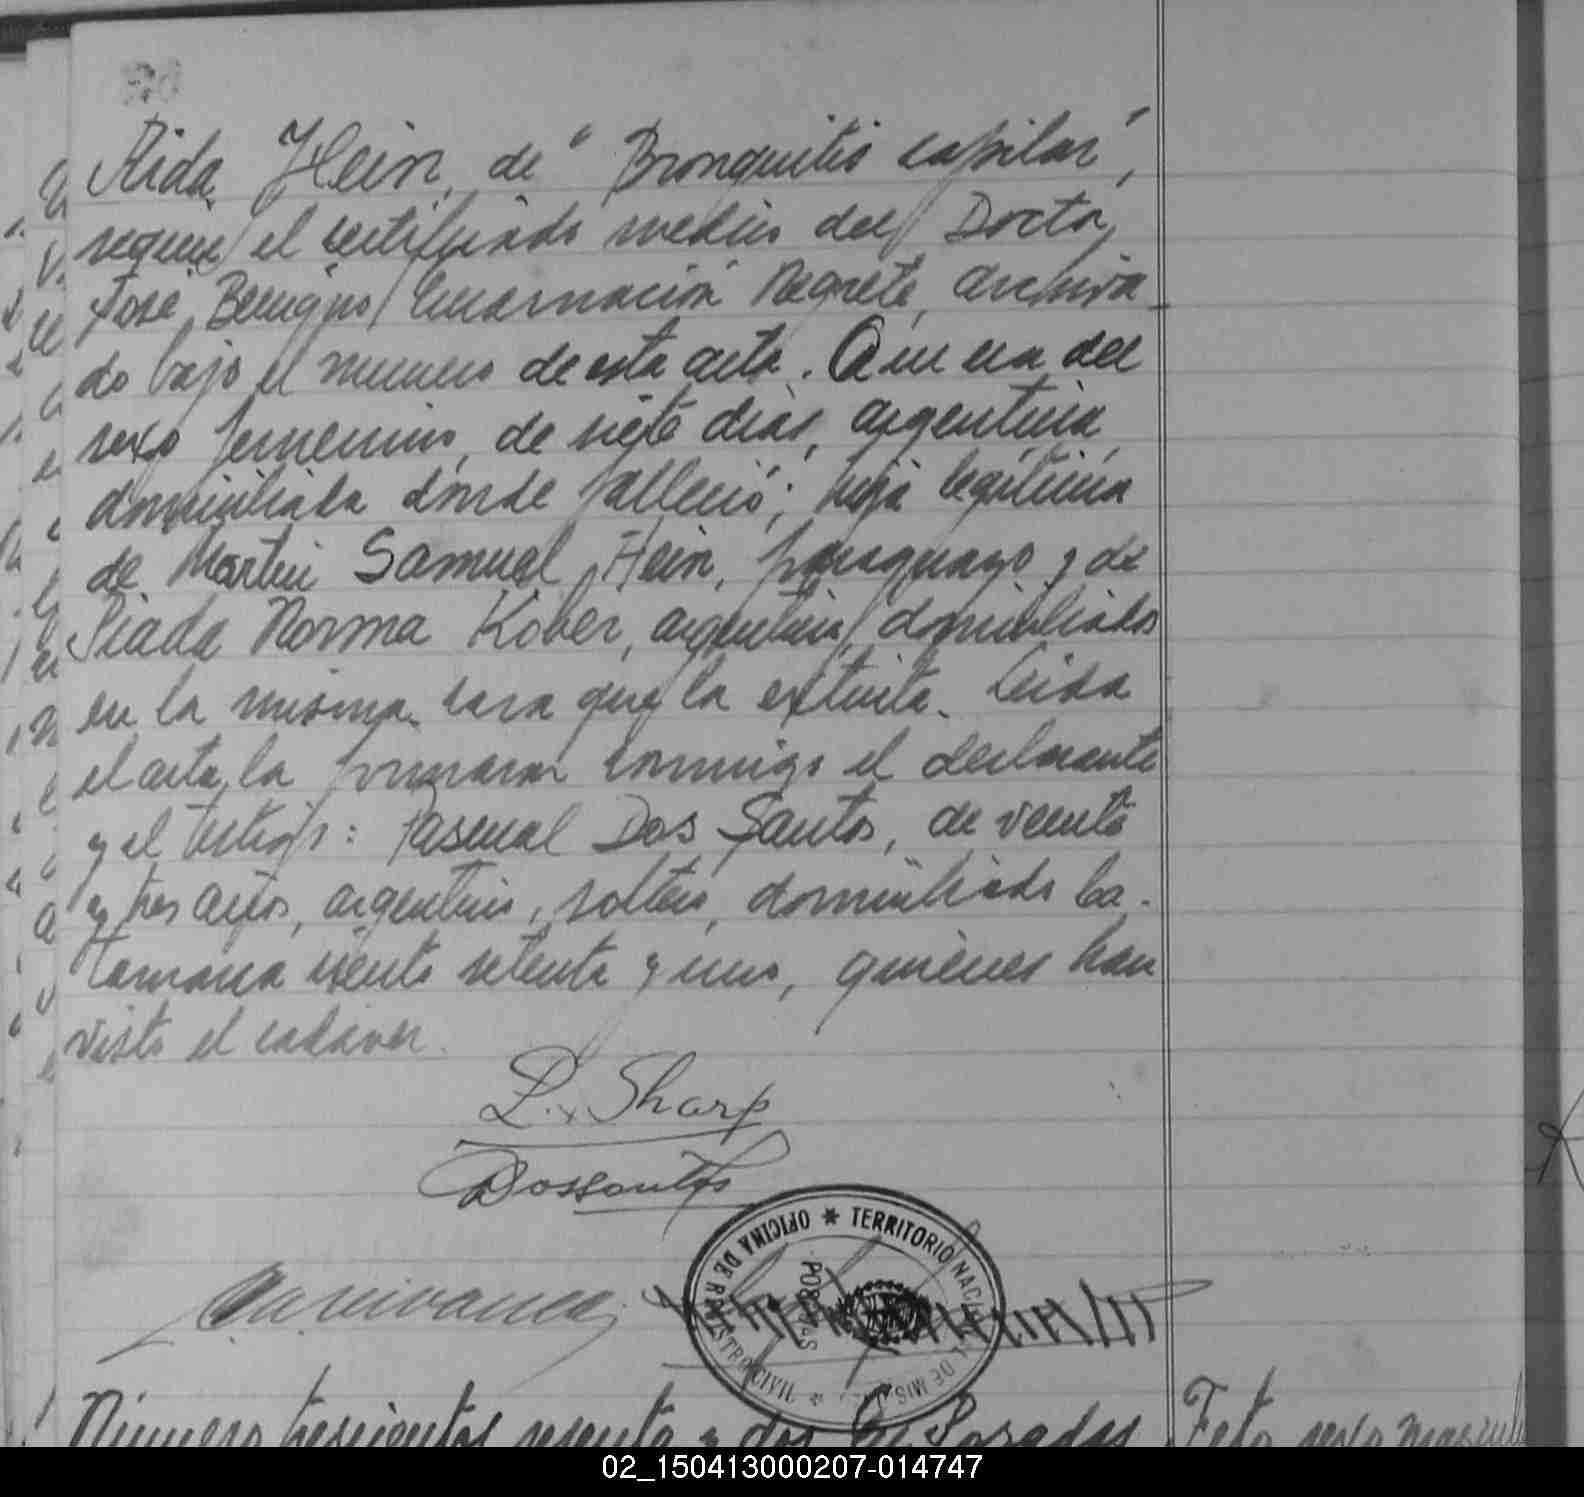 Aida Hein, de "Bronquitis capilar",
según el certificado médico del Doctor
José Benigno Encarnación Negrete, archiva-
do bajo el numero de esta acta. Que era del
sexo femenino, de siete dias, argentina,
domiciliada donde falleció; hija legítima
de Martin Samuel Hein, paraguayo y de
Norma Kober, argentina, domiciliados
en la misma casa que la extinta. Leida
el acta, la firmaron conmigo el declarante
y el testigo: Pascual Dos Santos, de veinte
y tres años, argentino, soltero, domiciliado Ca-
tamarca ciento setenta y uno, quienes han
visto el cadaver.
L. Sharp
Dossantos
OFICINA DE REGISTRO CIVIL * TERRITORIO NACIONAL DE MISIONES *
POSADAS
Número trescientos sesenta y dos En Posadas Feto sexo mascul
02_150413000207-014747